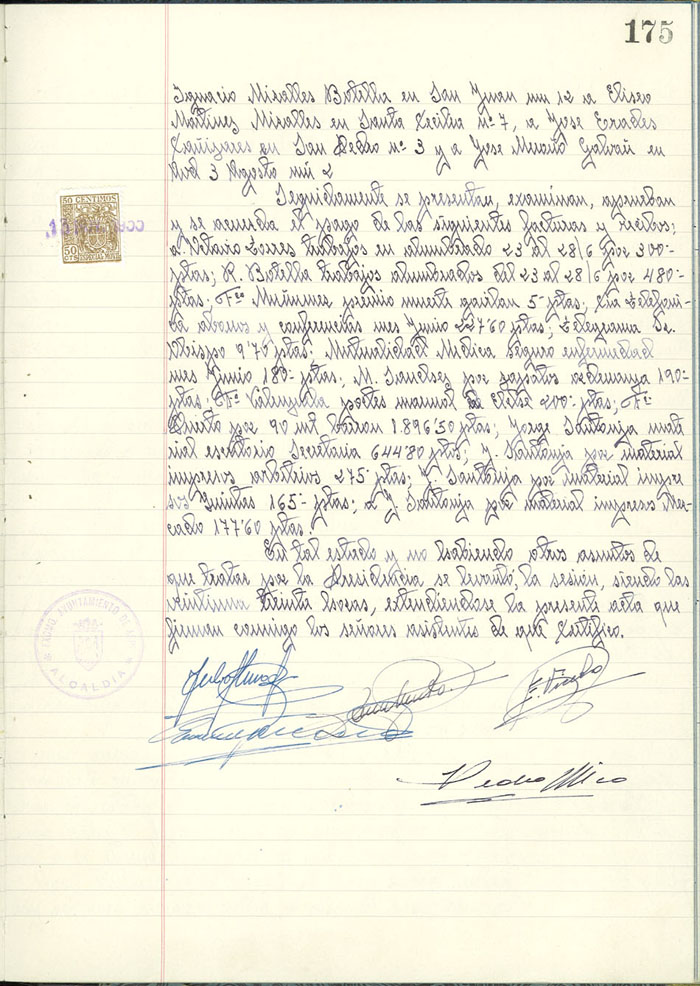 175
Ignacio Miralles Botella en San Juan num 12 a Eliseo
Martinez Miralles en Santa Cecilia nº 7, a Jose Erades
Cañizares en San Pedro nº 3 y a Jose Moraño Galvañ en
3 Agosto num 2
50 CENTIMOS
50
CTS ESPECIAL MOVIL
Seguidamente se presentan, examinan, aprueban
y se acuerda el pago de las siguientes facturas y recibos;
a Torres trabajos en alumbrado 23 al 28/6 por 300'-
ptas; R. Botella trabajos alumbrados del 23 al 28/6 por 480'-
ptas. Fco premio muerte 5'- ptas; Cia Telefoni-
ca abonos y conferencias mes Junio 227'60 ptas; Telegrama Sr.
Obispo 9'70 ptas. Mutualidad Medica seguro enfermedad
mes Junio 180'- ptas, M. Sanchez por zapatos ordenanza 190'-
ptas. Fco Valenzuela portes manual de Elche 200'- ptas;
por 90 mt 1.896'50 ptas; Jorge Santonja mate
rial escritorio Secretaria 644'80 ptas; J. Santonja por material
impresos arbitrios 275'- ptas; J. Santonja por material impre
sos Quintas 165'- ptas; a J. Santonja por material impresos Mer-
cado 177'60 ptas.
En tal estado y no habiendo otros asuntos de
que tratar por la Presidencia se levantó la sesión, siendo las
veintiuna treinta horas, extendiendose la presente acta que
firman conmigo los señores asistentes de que Certifico.
AYUNTAMIENTO DE
ALCALDIA
Pedro Mico